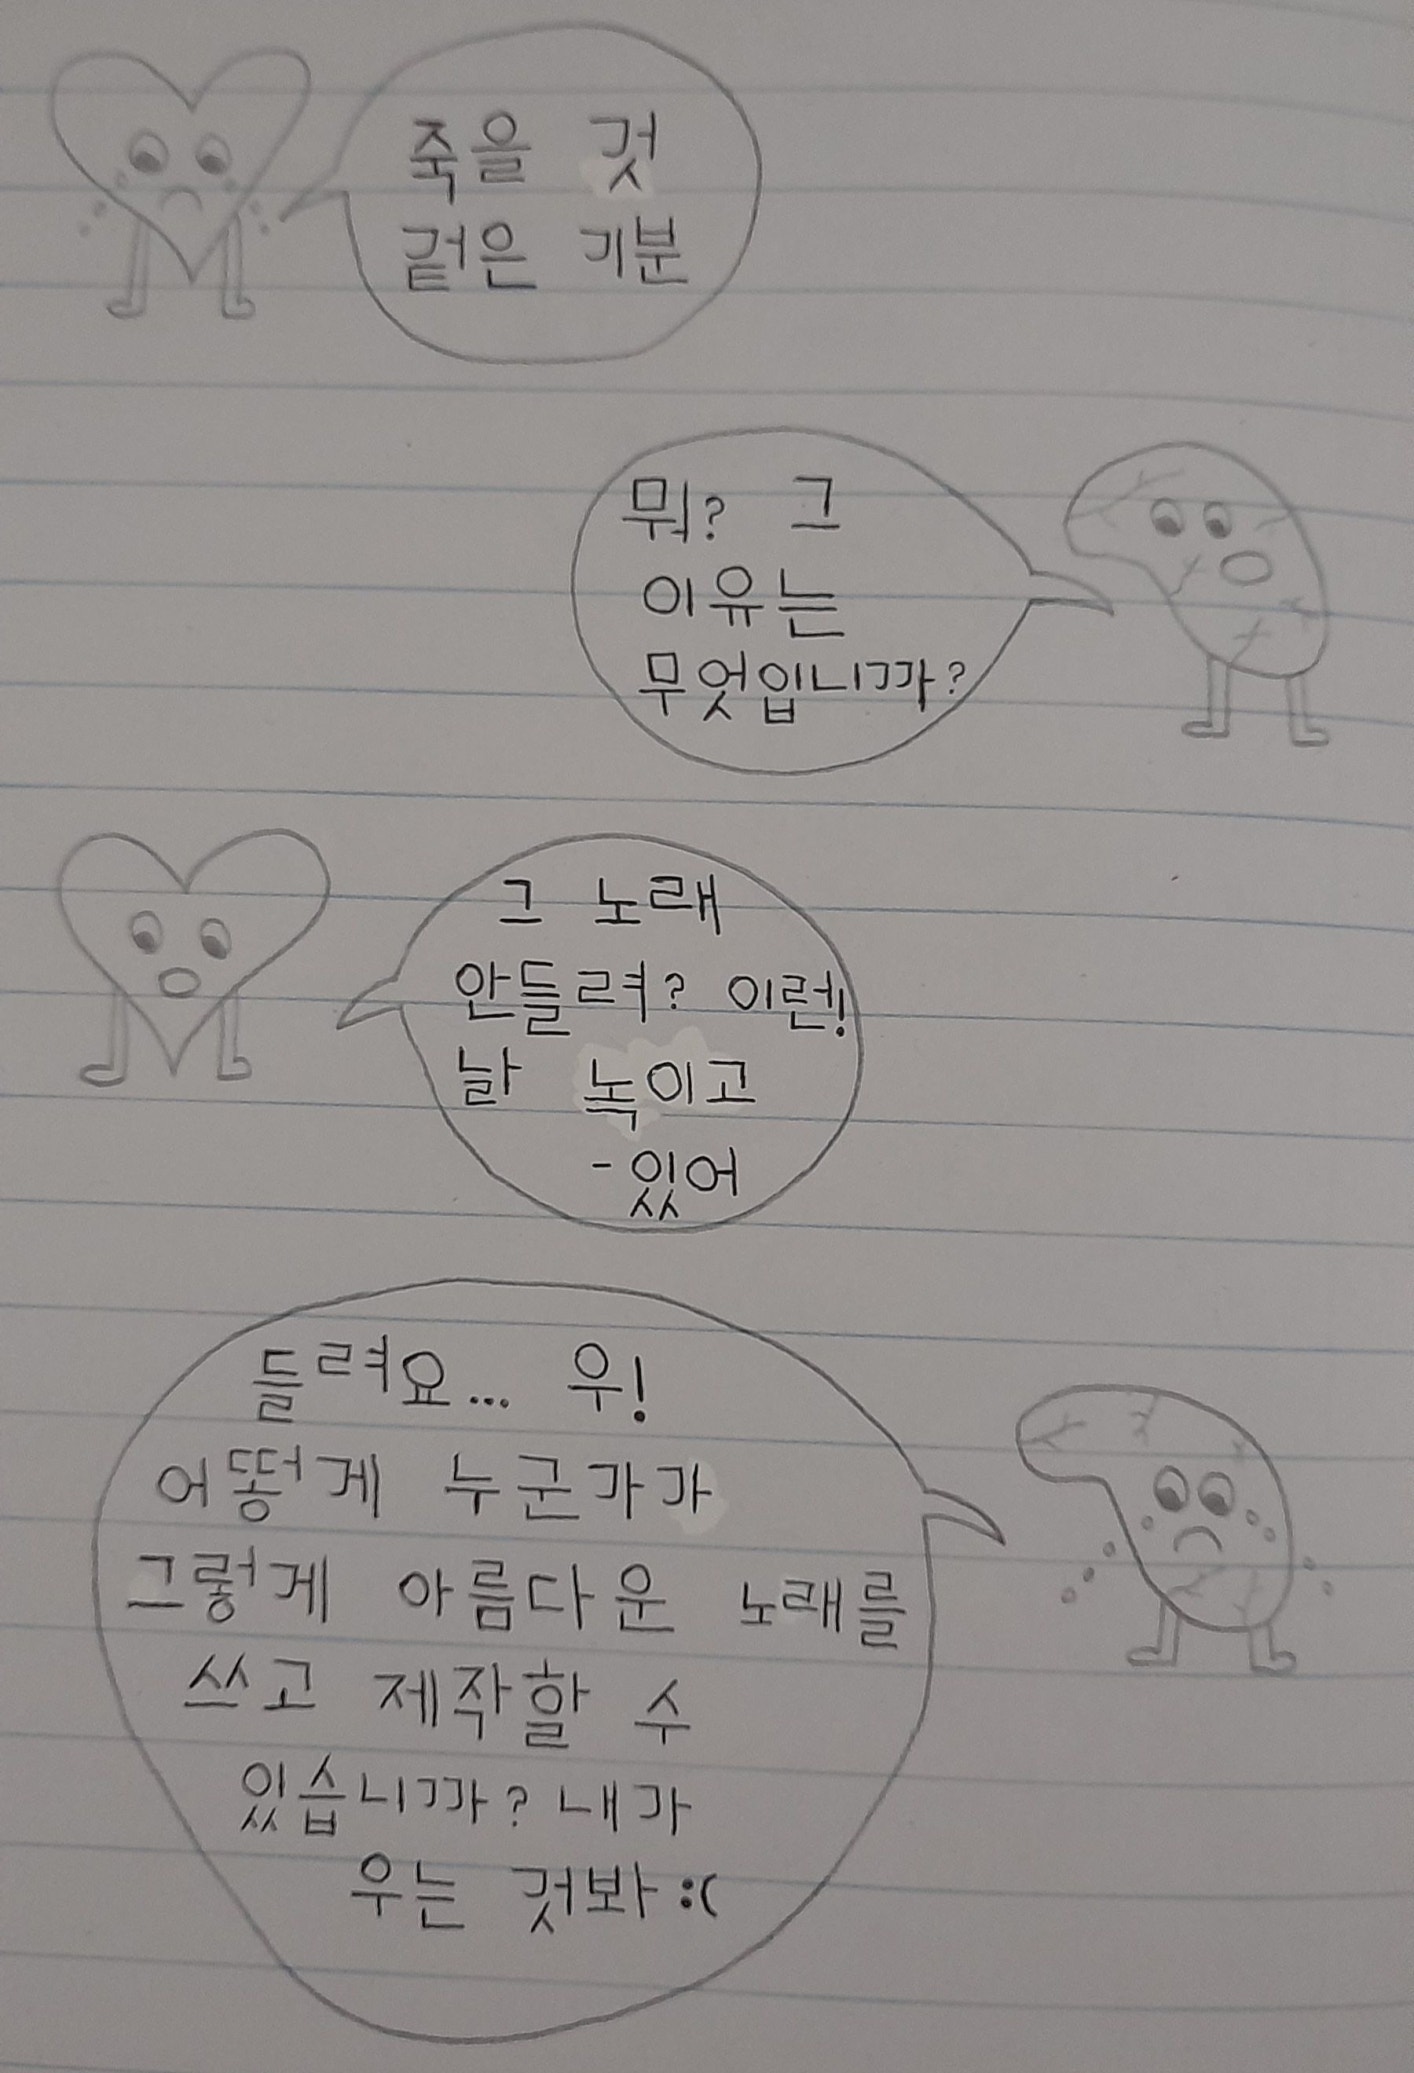 죽을 것
겉은 기분
뭐? 그
이유는
무엇입니까?
그 노래
안들려? 이런!
날 녹이고
-있어
들려요... 우!
어떻게 누군가가
그렇게 아름다운 노래를
쓰고 제작할 수
있습니까? 내가
우는 것봐 :(